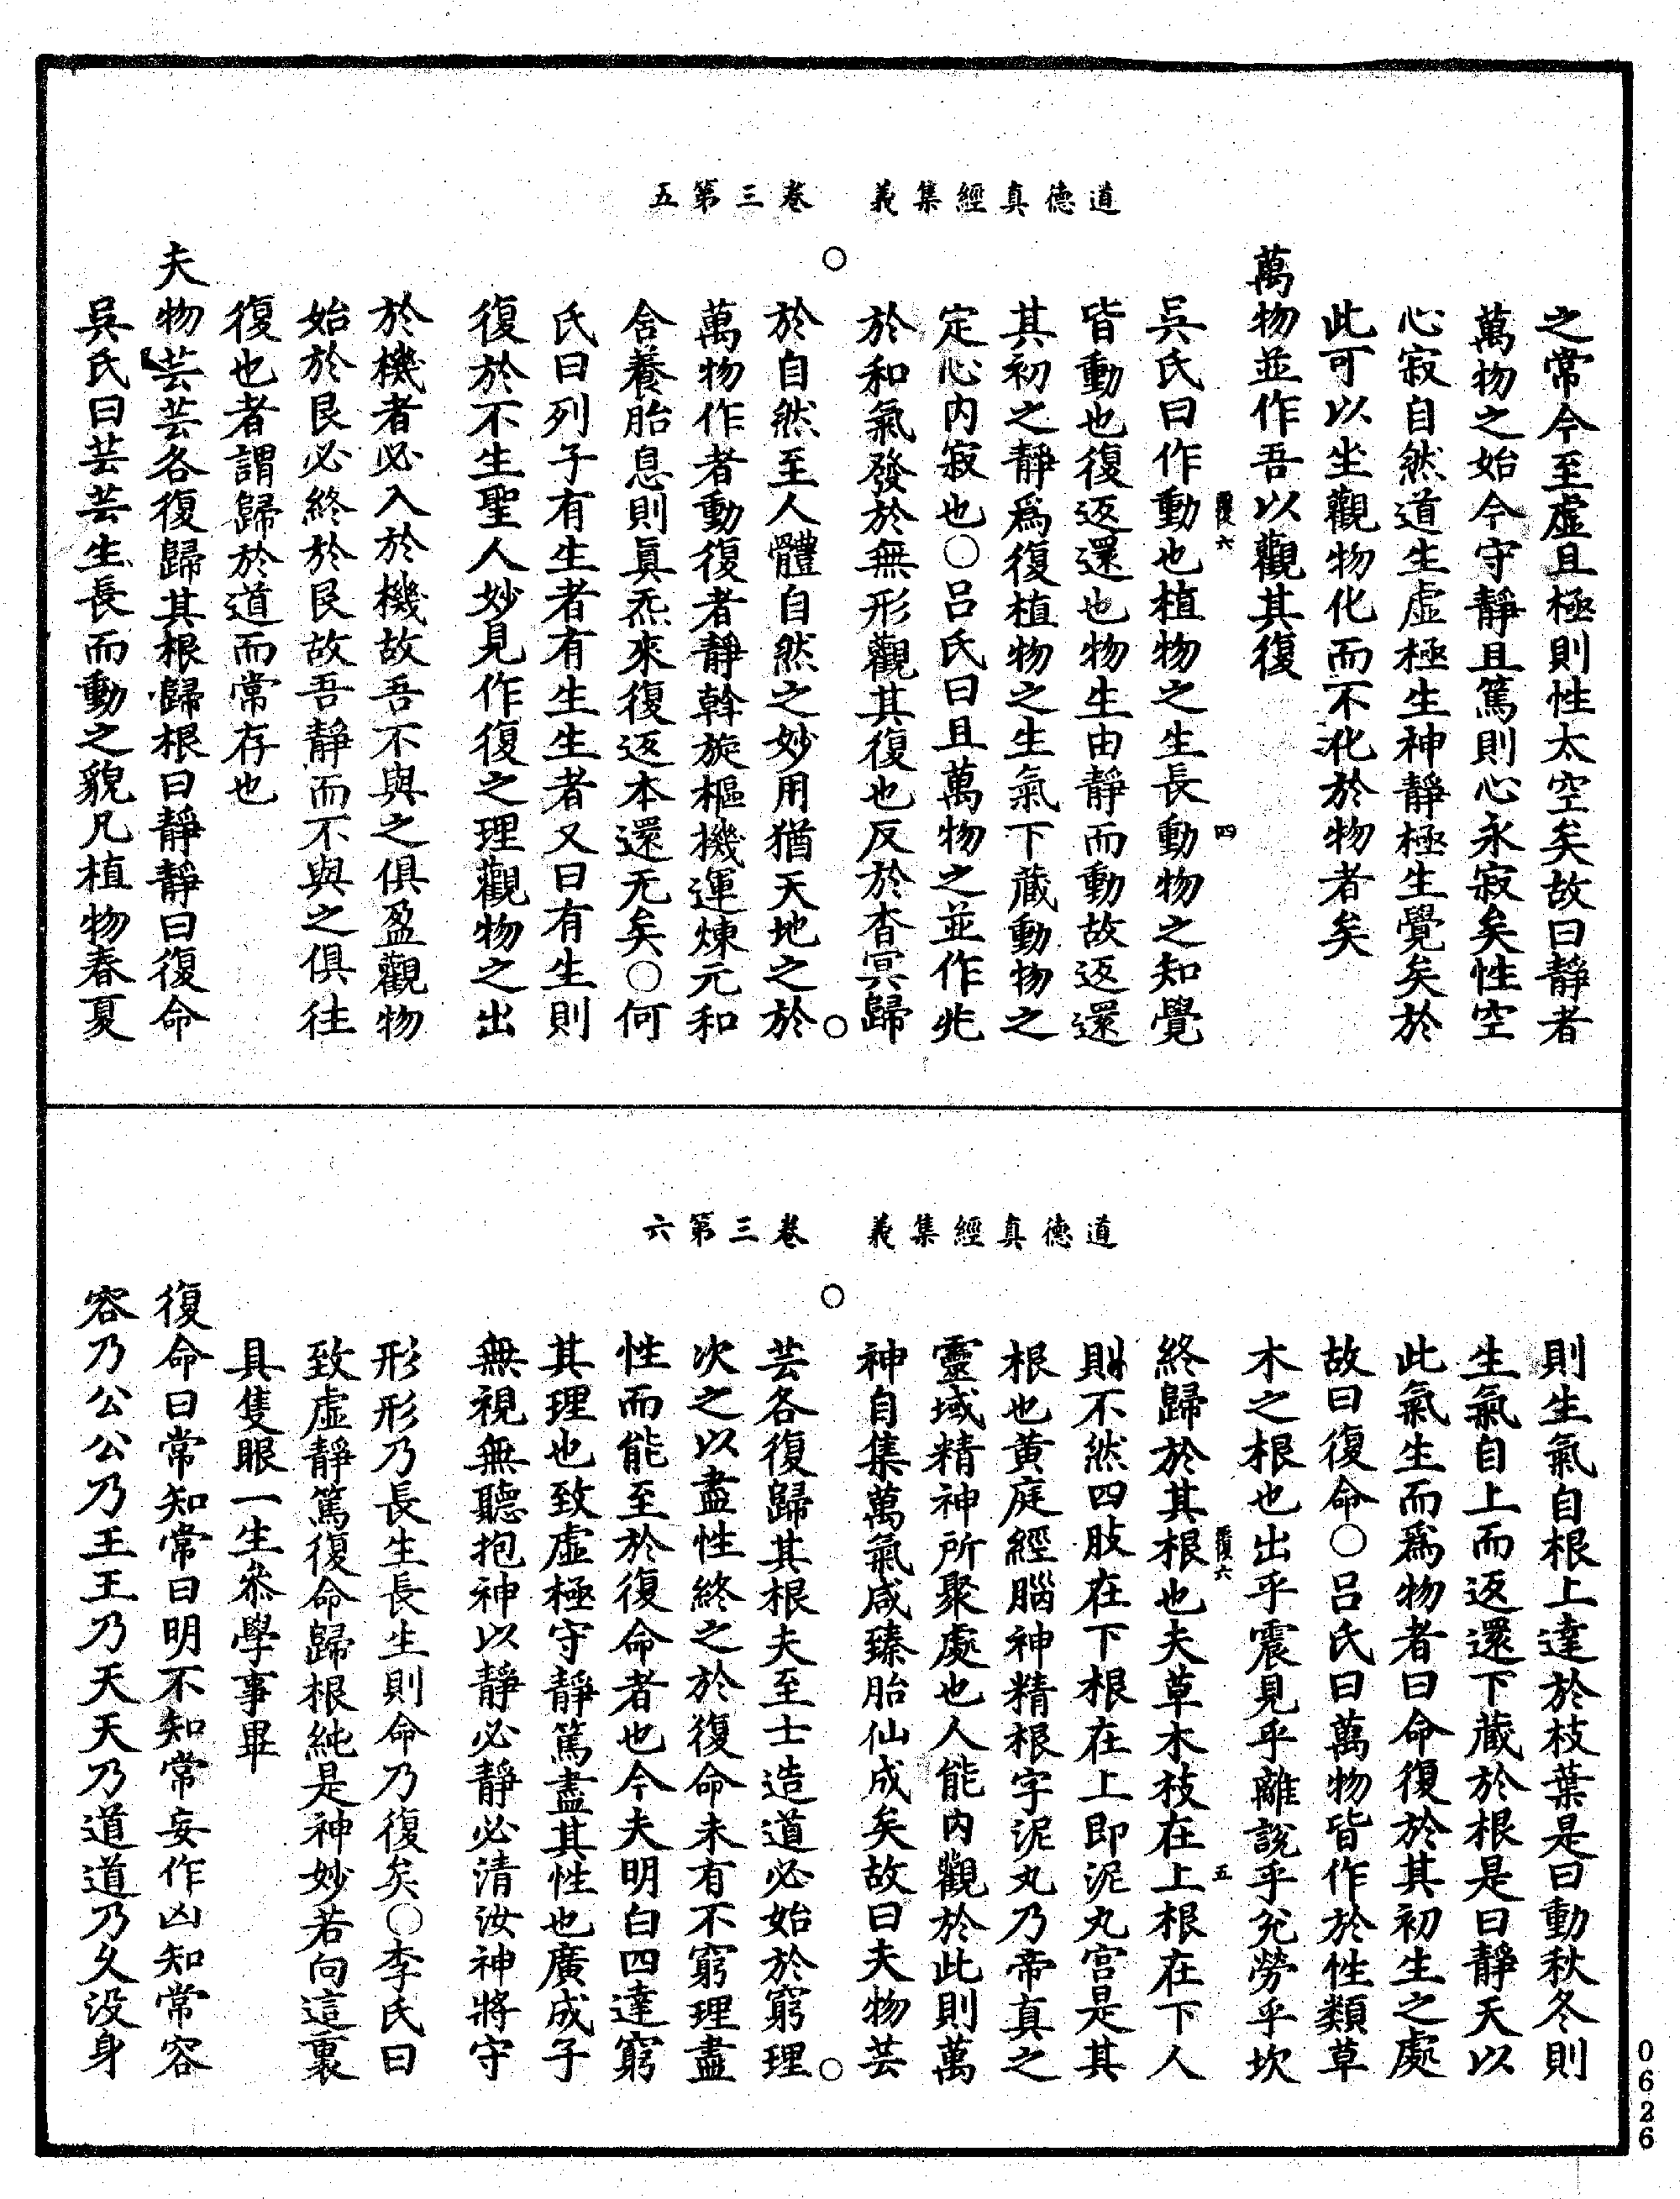 道德真經集義　卷三第五
之常今至虛且極則性太空矣故曰靜者
萬物之始今守靜且篤則心永寂矣性空
心寂自然道生虛極生神靜極生覺矣於
此可以坐觀物化而不化於物者矣
萬物並作吾以觀其復
吳氏曰作動也植物之生長動物之知覺
皆動也復返還也物生由靜而動故返還
其初之靜爲復植物之生氣下藏動物之
定心內寂也○呂氏曰且萬物之並作兆
於和氣發於無形觀其復也反於杳冥歸
於自然至人體自然之妙用猶天地之於
萬物作者動復者靜斡旋樞機運煉元和
含養胎息則眞炁來復返本還元矣○何
氏曰列子有生者有生生者又曰有生則
復於不生聖人妙見作復之理觀物之出
於機者必入於機故吾不與之俱盈觀物
始於艮必終於艮故吾靜而不與之俱往
復也者謂歸於道而常存也
夫物芸芸各復歸其根歸根曰靜靜曰復命
吳氏曰芸芸生長而動之貌凡植物春夏
四
道德真經集義　卷三第六
則生氣自根上達於枝葉是曰動秋冬則
生氣自上而返還下藏於根是曰靜天以
此氣生而爲物者曰命復於其初生之處
故曰復命○呂氏曰萬物皆作於性類草
木之根也出乎震見乎離說乎兌勞乎坎
終歸於其根也夫草木枝在上根在下人
則不然四肢在下根在上即泥丸宮是其
根也黄庭經腦神精根字泥丸乃帝真之
靈域精神所聚處也人能內觀於此則萬
神自集萬氣咸臻胎仙成矣故曰夫物芸
芸各復歸其根夫至士造道必始於窮理
次之以盡性終之於復命未有不窮理盡
性而能至於復命者也今夫明白四達窮
其理也致虛極守靜篤盡其性也廣成子
無視無聽抱神以靜必靜必清汝神將守
形形乃長生長生則命乃復矣○李氏曰
致虛靜篤復命歸根純是神妙若向這裏
具隻眼一生叅學事畢
復命曰常知常曰明不知常妄作凶知常容
容乃公公乃王王乃天天乃道道乃久没身
五
0626